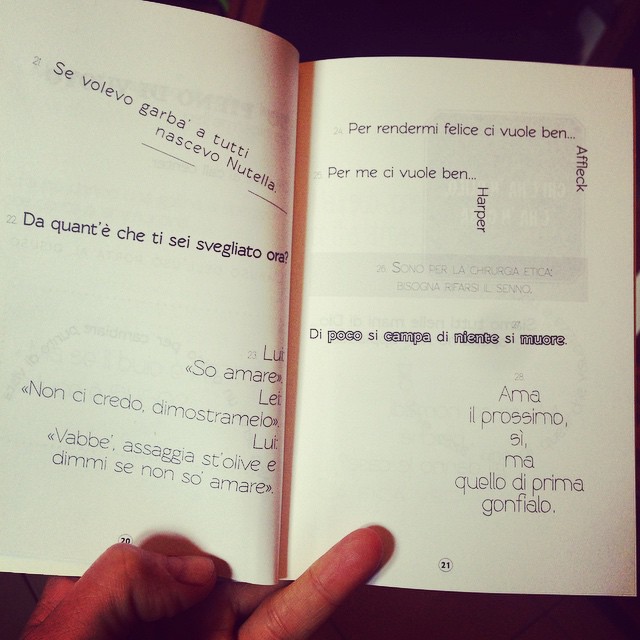 21 Se volevo garba' a tutti
nascevo Nutella.
22 Da quant'è che ti sei svegliato ora?
23 Lui:
«So amare».
Lei:
«Non ci credo, dimostramelo».
Lui:
«Vabbe', assaggia st'olive e
dimmi se non so' amare».
20
24 Per rendermi felice ci vuole ben...
Affleck
25 Per me ci vuole ben...
Harper
26 SONO PER LA CHIRURGIA ETICA:
BISOGNA RIFARSI IL SENNO.
27
Di poco si campa di niente si muore.
28
Ama
il prossimo,
sì,
ma
quello di prima
gonfialo.
21